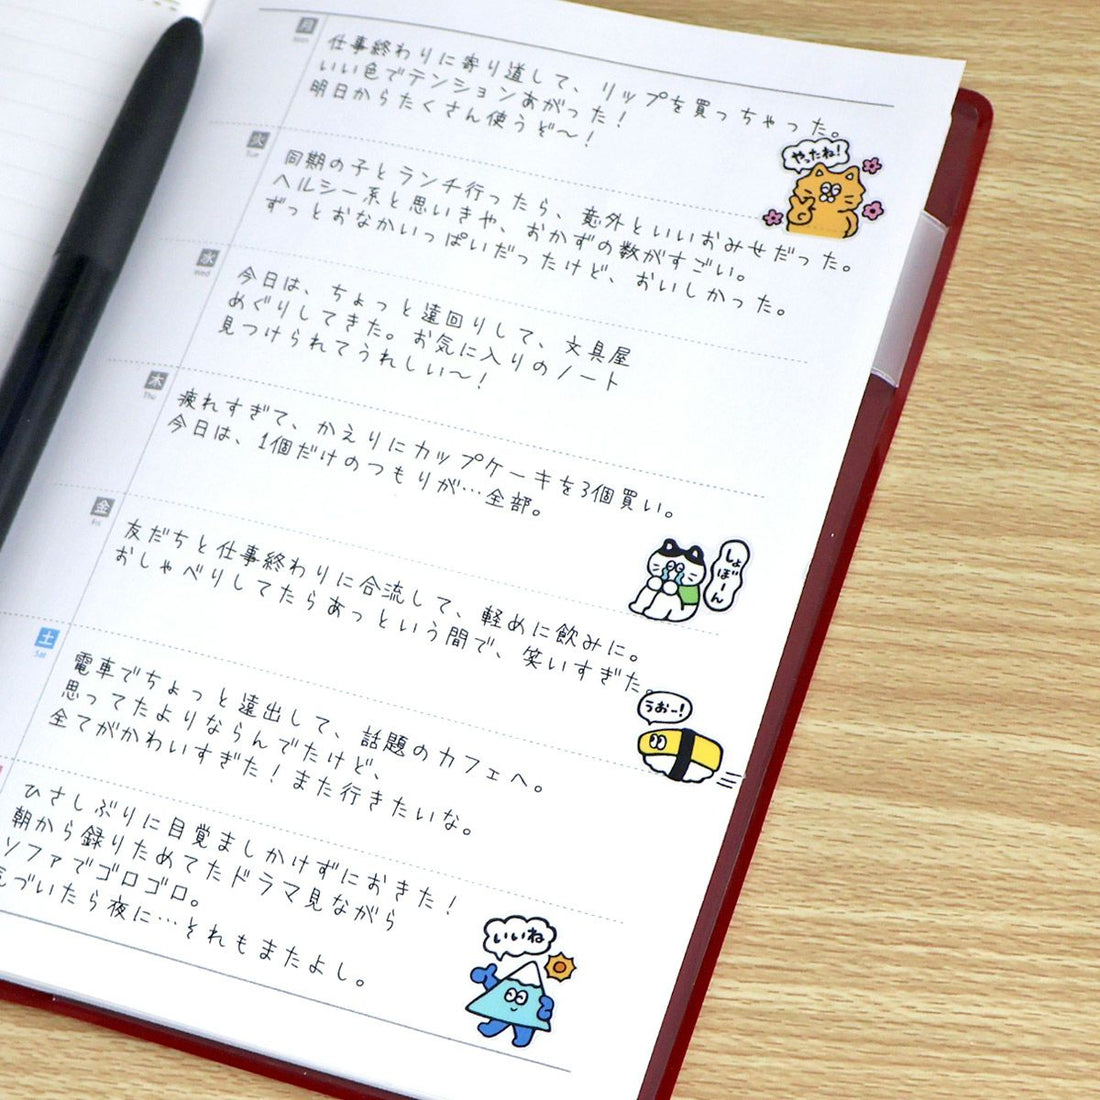 月
Mon
仕事終わりに寄り道して、リップを買っちゃった。
いい色でテンションあがった!
明日からたくさん使うど〜!
やったね!
火
Tue
同期の子とランチ行ったら、意外といいおみせだった。
ヘルシー系と思いきや、おかずの数がすごい。
ずっとおなかいっぱいだったけど、おいしかった。
水
Wed
今日は、ちょっと遠回りして、文具屋
めぐりしてきた。お気に入りのノート
見つけられてうれしい〜!
木
Thu
疲れすぎて、かえりにカップケーキを3個買い。
今日は、1個だけのつもりが…全部。
しょぼーん
金
Fri
友だちと仕事終わりに合流して、軽めに飲みに。
おしゃべりしてたらあっという間で、笑いすぎた。
うおー!
土
Sat
電車でちょっと遠出して、話題のカフェへ。
思ってたよりならんでたけど、
全てがかわいすぎた!また行きたいな。
ひさしぶりに目覚ましかけずにおきた!
朝から録りためてたドラマ見ながら
ソファでゴロゴロ。
気づいたら夜に…それもまたよし。
いいね